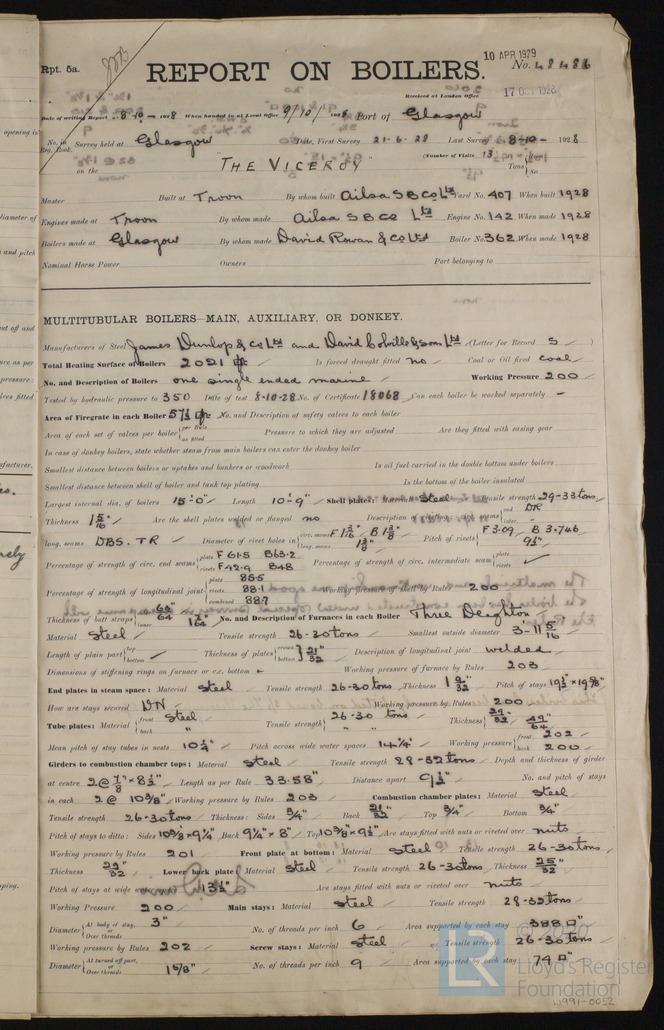 10 APR 1929
Rpt. 5a.
REPORT ON BOILERS.
No. 48486
Received at London Office 17 OCT 1928
Date of writing Report 8-10-1928 When handed in at Local Office 9/10/1928 Port of Glasgow
No. in Reg. Book. Survey held at Glasgow Date, First Survey 21-6-28 Last Survey 8-10-1928
on the "THE VICEROY" (Number of Visits 13) Tons
Master Built at Troon By whom built Ailsa S B Co Ltd Yard No. 407 When built 1928
Engines made at Troon By whom made Ailsa S B Co Ltd Engine No. 142 When made 1928
Boilers made at Glasgow By whom made David Rowan & Co Ltd Boiler No. 362 When made 1928
Nominal Horse Power Owners Port belonging to
MULTITUBULAR BOILERS—MAIN, AUXILIARY, OR DONKEY.
Manufacturers of Steel James Dunlop & Co Ltd and David Colville & Sons Ltd (Letter for Record S)
Total Heating Surface of Boilers 2021 Is forced draught fitted no Coal or Oil fired coal
No. and Description of Boilers one single ended marine Working Pressure 200
Tested by hydraulic pressure to 350 Date of test 8-10-28 No. of Certificate 18068 Can each boiler be worked separately -
Area of Firegrate in each Boiler No. and Description of safety valves to each boiler
Area of each set of valves per boiler per Rule as fitted Pressure to which they are adjusted Are they fitted with easing gear
In case of donkey boilers, state whether steam from main boilers can enter the donkey boiler
Smallest distance between boilers or uptakes and bunkers or woodwork Is oil fuel carried in the double bottom under boilers
Smallest distance between shell of boiler and tank top plating Is the bottom of the boiler insulated
Largest internal dia. of boilers 15'-0" Length 10'-9" Shell plates: Material Steel Tensile strength 29-33 tons
Thickness 1 5/16" Are the shell plates welded or flanged no Description of riveting: circ. seams end DR
long. seams DBS. TR Diameter of rivet holes in circ. seams F 1 3/16" B 1 3/8" long. seams 1 3/8" Pitch of rivets F 3.09 B 3.746 9 1/2"
Percentage of strength of circ. end seams plate F 61.5 B 63.2 rivets F 42.9 B 48 Percentage of strength of circ. intermediate seam plate rivets
Percentage of strength of longitudinal joint plate 85.5 rivets 88.1 combined 88.7 Working pressure of shell by Rules 200
Thickness of butt straps outer inner 1 1/64" No. and Description of Furnaces in each Boiler Three Deighton
Material Steel Tensile strength 26-30 tons Smallest outside diameter 3-11 5/16
Length of plain part top bottom Thickness of plates crown bottom 21/32" Description of longitudinal joint welded
Dimensions of stiffening rings on furnace or c.c. bottom Working pressure of furnace by Rules 203
End plates in steam space: Material Steel Tensile strength 26-30 tons Thickness 1 9/32" Pitch of stays
How are stays secured DN Working pressure by Rules 200
Tube plates: Material front Steel back " Tensile strength 26-30 tons " " Thickness 29/32" 49/64"
Mean pitch of stay tubes in nests 10 1/4" Pitch across wide water spaces 14 1/4" Working pressure front 202 back 200
Girders to combustion chamber tops: Material Steel Tensile strength 28-32 tons Depth and thickness of girder
at centre 2 @ 7/8" × 8 1/2" Length as per Rule 33.58" Distance apart 9 1/2" No. and pitch of stays
in each 2 @ 10 3/8" Working pressure by Rules 203 Combustion chamber plates: Material Steel
Tensile strength 26-30 tons Thickness: Sides 3/4" Back 21/32" Top 3/4" Bottom 3/4"
Pitch of stays to ditto: Sides 10 3/8 × 9 1/4" Back 9 1/4" × 8" Top 10 3/8" × 9 1/2" Are stays fitted with nuts or riveted over nuts
Working pressure by Rules 201 Front plate at bottom: Material Steel Tensile strength 26-30 tons
Thickness 29/32" Lower back plate: Material Steel Tensile strength 26-30 tons Thickness 25/32"
Pitch of stays at wide water space 13 1/2" Are stays fitted with nuts or riveted over nuts
Working Pressure 200 Main stays: Material Steel Tensile strength 28-32 tons
Diameter At body of stay, or Over threads 3" No. of threads per inch 6 Area supported by each stay 388 □"
Working pressure by Rules 202 Screw stays: Material Steel Tensile strength 26-30 tons
Diameter At turned off part, or Over threads 1 5/8" No. of threads per inch 9 Area supported by each stay 74 □"
© 2020
LR Lloyd's Register Foundation
W991-0052